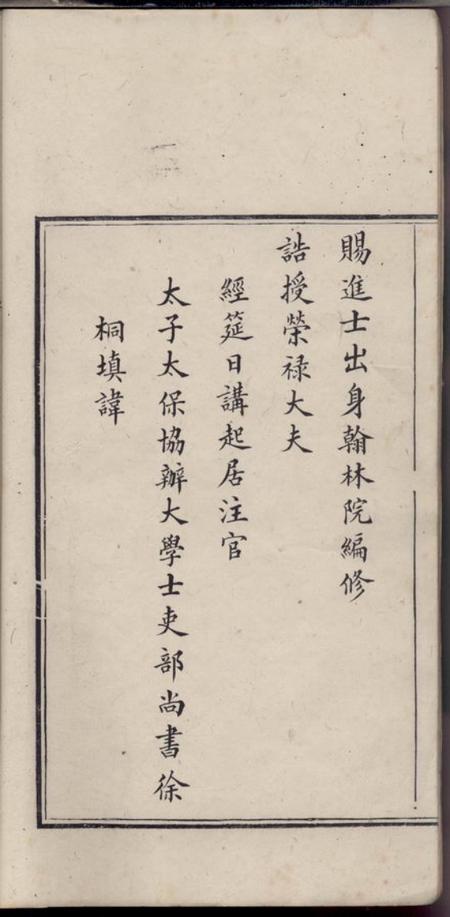 賜進士出身翰林院編修
誥授榮祿大夫
經筵日講起居注官
太子太保協辦大學士吏部尚書徐
桐填諱